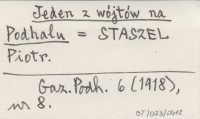 Jeden z wójtów na
Podhalu = STASZEL
Piotr.
Gaz. Podh. 6 (1918),
nr 8.